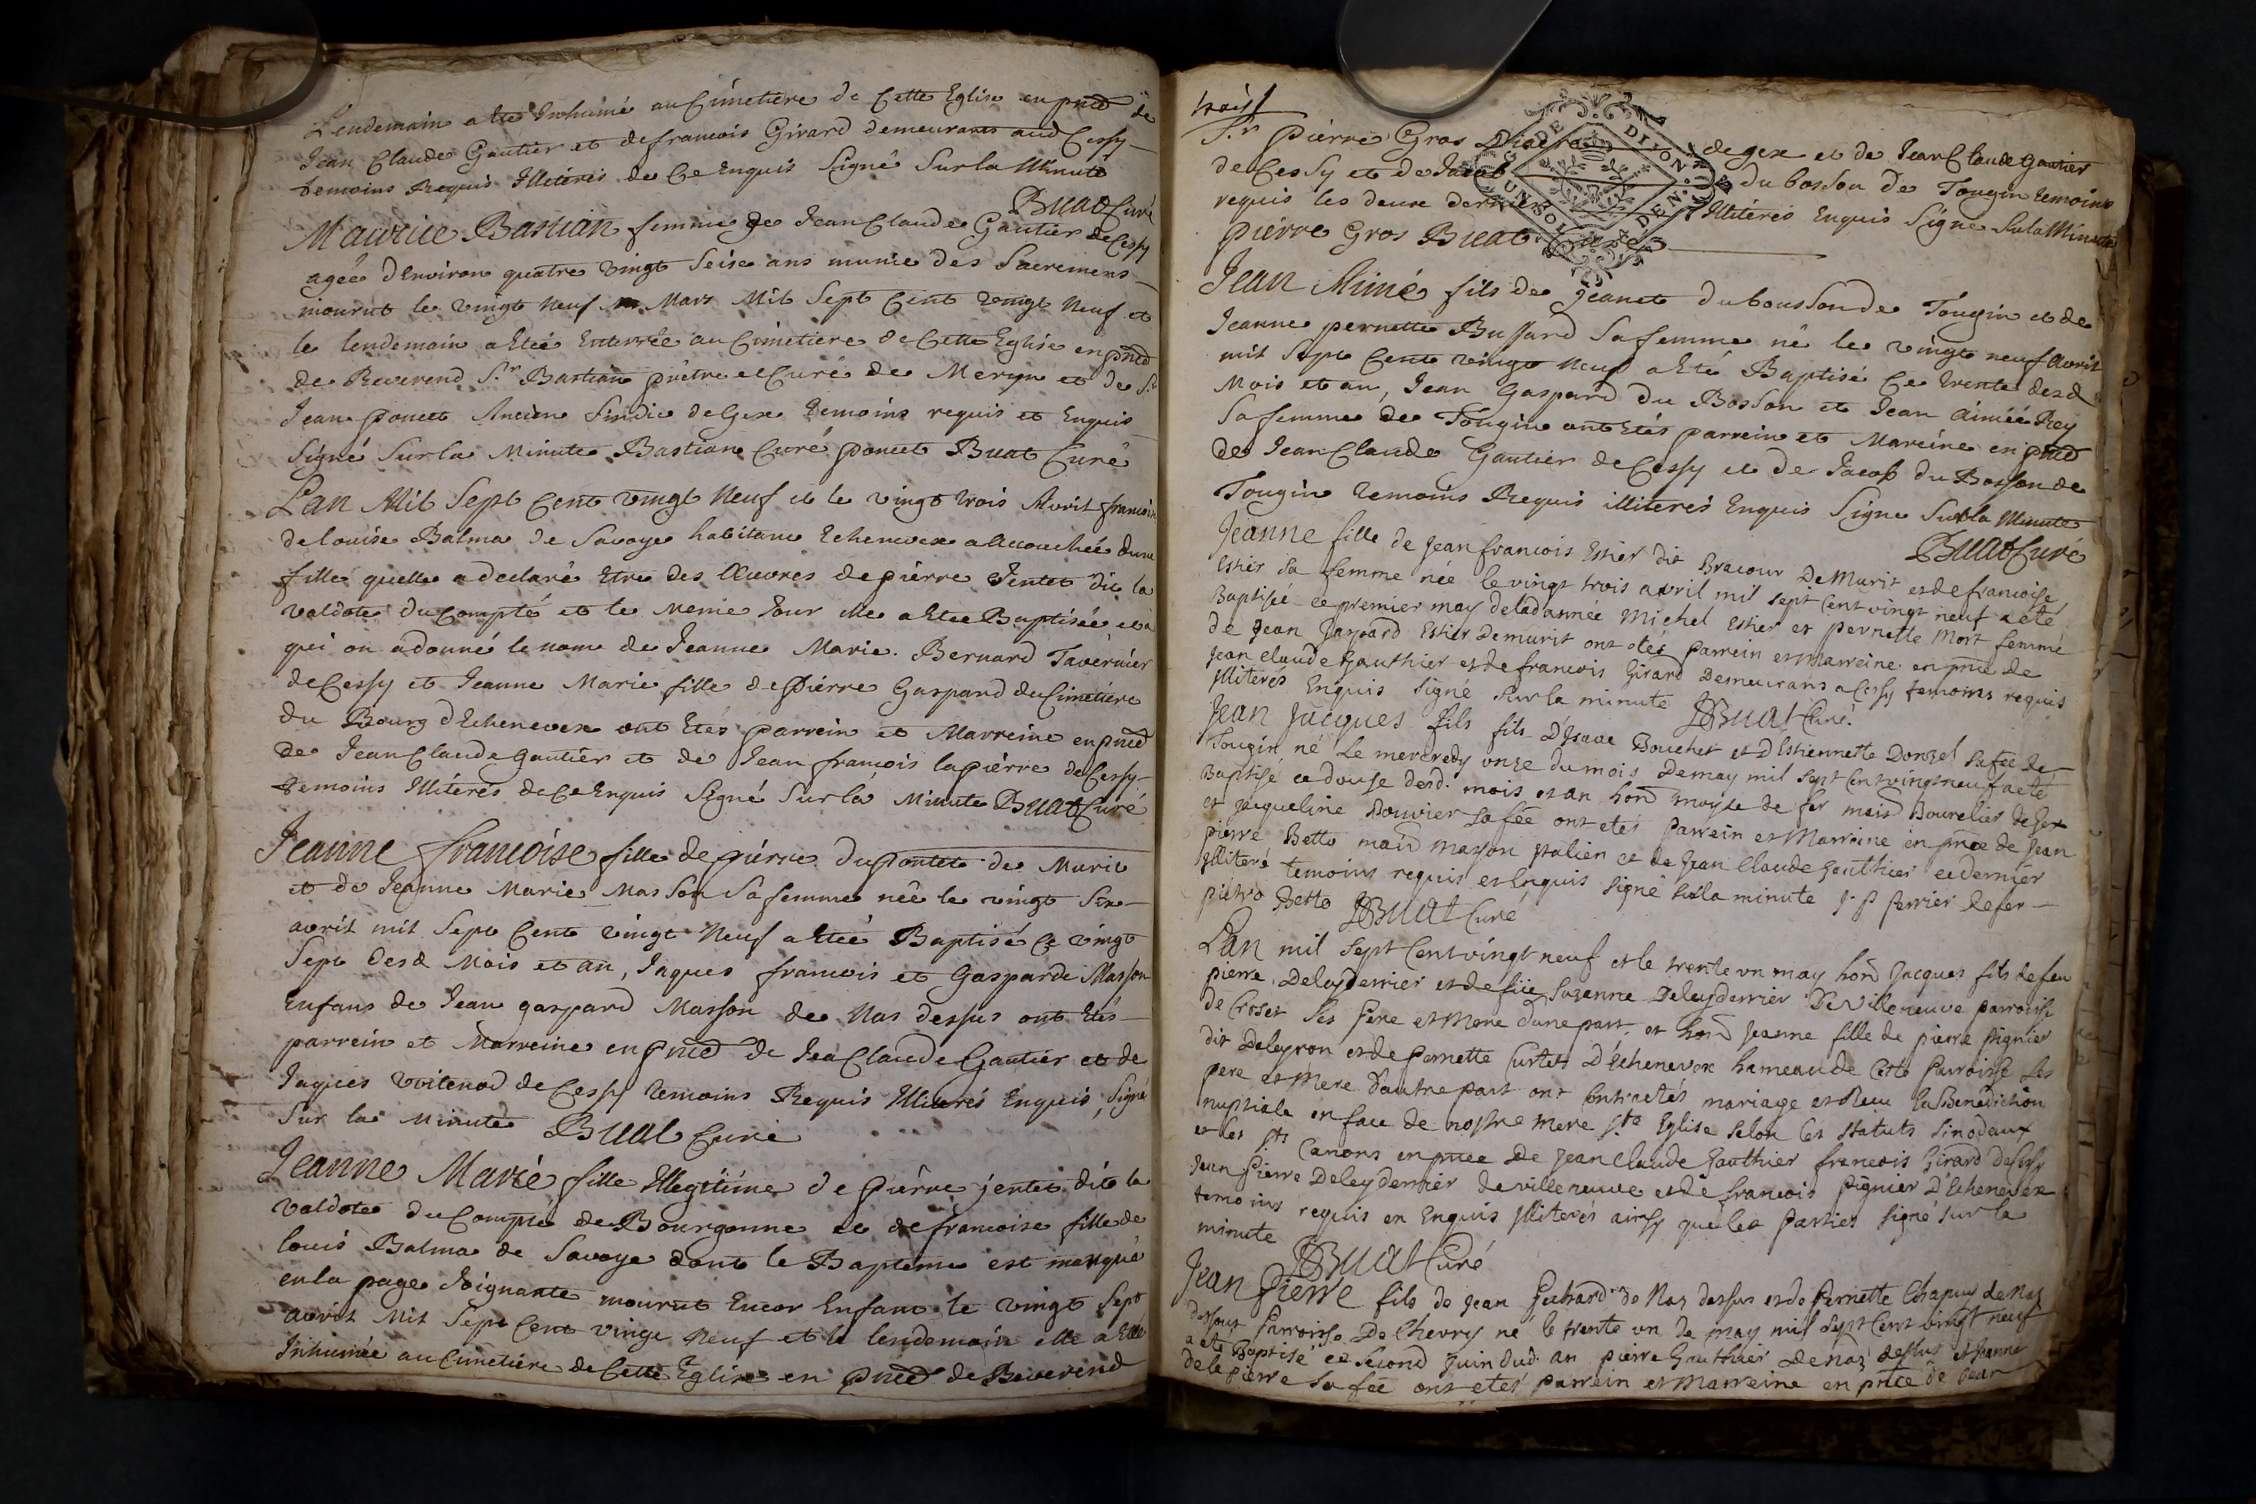 Lendemain a Eté Inhumé au Cimetiere de Cette Eglise en pnce de
Jean Claude Gautier et de francois Girard demeurants aud Cessy
temoins Requis Illitérés de Ce Enquis Signé Sur la Minute
Buat Curé
Maurice Bastian femme de Jean Claude Gautier de Cessy
agée d'Environ quatre vingt Seise ans munie des Sacremens
mourut le vingt Neuf Mars Mil Sept Cent vingt Neuf et
le lendemain a Etée Enterrée au Cimetiere de Cette Eglise en pnce
de Reverend Sr Bastian prêtre et Curé de Meryn et de Sr
Jean poncet Ancien Sindic de Gex temoins requis et Enquis
Signé Sur la Minute Bastian Curé poncet Buat Curé
L'an Mil Sept Cent vingt Neuf et le vingt trois Avril francoise
de louise Balma de Savoye habitant Echenevex a accouchée d'une
fille quelle a declaré Etre des Œuvres de piérre Jentet dit la
valdote du Compté et le meme Jour elle a Etee Baptisée et a
qui on a donné le nom de Jeanne Marie. Bernard Tavernier
de Cessy et Jeanne Marie fille de Piérre Gaspard du Cimetiére
du Bourg d'Echenevex ont Etés parrein et Marreine en pnce
de Jean Claude gautier et de Jean francois lapiérre de Cessy
temoins Illitérés de Ce Enquis Signé Sur la Minute Buat Curé
Jeanne francoise fille de piérre du pontet de Murit
et de Jeanne Marie Masson Sa femme née le vingt Six
avril mil Sept Cent vingt Neuf a Etée Baptisé Ce vingt
Sept desd Mois et an, Jaques francois et Gasparde Masson
Enfans de Jean gaspard Masson de Nas dessus ont Etés
parrein et Marreine en pnce de Jea Claude Gautier et de
Jaques de Cessy temoins Requis Illiterés Enquis, Signé
Sur la Minute Buat Curé
Jeanne Marie fille Illegitime de piérre jentet dit la
valdote du Compté de Bourgonne et de francoise fille de
louis Balma de Savoye dont le Bapteme est marqué
en la page Joignante mourut Encor Enfant le vingt Sept
avril Mil Sept Cent vingt Neuf et le lendemain elle a Etée
Inhumée au Cimetiére de Cette Eglise en pnce de Reverend
trois
Sr piérre Gros de gex et de Jean Claude gautier
de Cessy et de Jacob du bosson de Tougin temoins
requis les deux derniers Illitérés Enquis Signé Sur la Minute
piérre Gros Buat Curé
GE DE DIJON
Jean Aimé fils de Jeanet du bousson de Tougin et de
Jeanne pernette Bussard Sa femme né le vingt neuf Avril
mil Sept Cent vingt Neuf a Eté Baptisé Ce trente desd
Mois et an, Jean Gaspard du Bosson et Jean Aimée Rey
Sa femme de Tougin ont Etés parrein et Mareine en pnce
de Jean Claude Gautier de Cessy et de Jacob du Bosson de
Tougin temoins Requis illiterés Enquis Signé Sur la Minute
Buat Curé
Jeanne fille de Jean francois Estier dit Bracour De Murit et de francoise
Estier sa femme née le vingt trois avril mil sept cent vingt neuf a eté
Baptisée ce premier may de lad année Michel Estier et pernette Mort femme
de Jean Gaspard Estier Demurit ont etés parrein et Marreine en pnce de
Jean Claude Gauthier et de francois Girard Demeurans a Cessy temoins requis
Illiterés Enquis signé sur la minute JBuat Curé.
Jean Jacques fils fils D'Isaac Bouchet et d'Estiennette Donzel sa fee De
Tougin né Le mercredy onze du mois Demay mil sept Cent vingt neuf a eté
Baptisé ce douse desd. mois et an hond moyse de fer maid Bourelier de Gex
et Jacqueline Bouvier sa fée ont etés parrein et Marreine en pnce de Jean
pierre Betto maid masson Italien et de Jean Claude Gauthier ce dernier
Illiteré temoins requis et Enquis signé sur la minute J. p perrier Defer
pietro Betto JBuat Curé
L'An mil sept Cent vingt neuf et le trente un may hond Jacques fils de feu
pierre Deleyderrier et de fue Susanne Deleyderrier De villeneuve parroisse
de Croset ses pere et Mere d'une part, et hond Jeanne fille de pierre pignier
dit Deleyron et de pernette Curtet D'Echenevex hameau de Cette Parroisse ses
pere et Mere d'autre part ont Contractés mariage et Receu la Benediction
nuptiale en face de nostre mere ste Eglise selon les statuts sinodaux
et les sts Canons en pnce De Jean Claude Gauthier francois Girard de Cessy
Jean pierre Deleyderrier de villeneuve et de francois pignier D'Echenevex
temoins requis en Enquis Illiterés ainsy que les parties signé sur la
minute JBuat Curé
Jean Pierre fils de Jean de Naz dessus et de Pernette Chapuy de Naz
dessous Parroisse De Chevry né le trente un de may mil sept Cent vingt neuf
a eté Baptisé ce second Juin dud. an pierre Gauthier de naz dessus et Jeanne
de le pierre sa fée ont etés parrein et Marreine en pnce de Jean